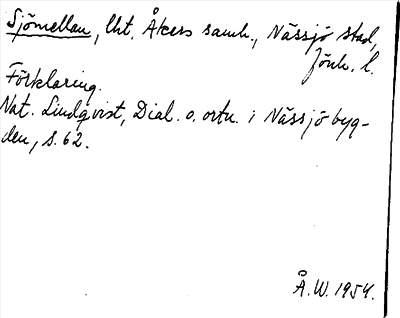 Sjömellan, lht. Åkers samh., Nässjö stad,
Jönk. l.
Förklaring.
Nat. Lindqvist, Dial. o. ortn. i Nässjöbyg-
den, s. 62.
Å.W. 1954.